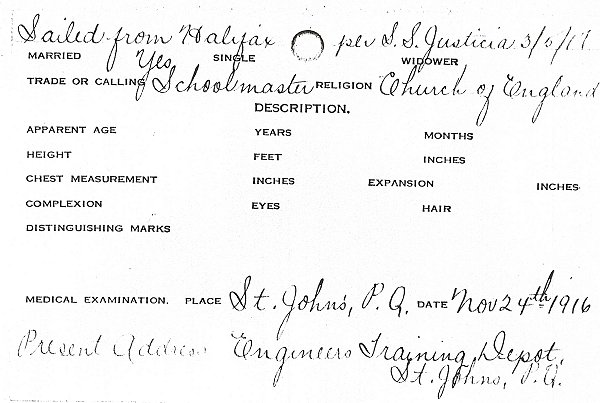 Sailed from Halifax per S.S. Justicia 3/5/17
MARRIED Yes SINGLE WIDOWER
TRADE OR CALLING Schoolmaster RELIGION Church of England
DESCRIPTION.
APPARENT AGE YEARS MONTHS
HEIGHT FEET INCHES
CHEST MEASUREMENT INCHES EXPANSION INCHES
COMPLEXION EYES HAIR
DISTINGUISHING MARKS
MEDICAL EXAMINATION. PLACE St. John's, P.Q. DATE Nov 24th 1916
Present Address Engineers Training Depot,
St. Johns, P.Q.